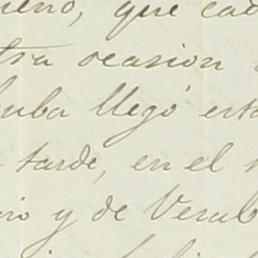 ueno, que cad
tra ocasion
uba llegó esta
tarde, en el
io y de Verub